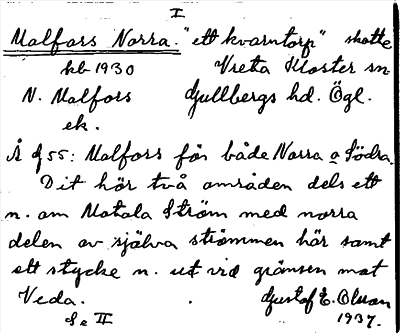 I
Malfors Norra. "ett kvarntorp" skatte
kb 1930 Vreta Kloster sn
N. Malfors Gullbergs hd. Ögl.
ek.
Å J 55: Malfors för både Norra o Södra.
Dit hör två områden dels ett
n. om Motala Ström med norra
delen av själva strömmen här samt
ett stycke n. ut vid gränsen mot
Veda. Gustaf E. Olsson
Se II 1937.